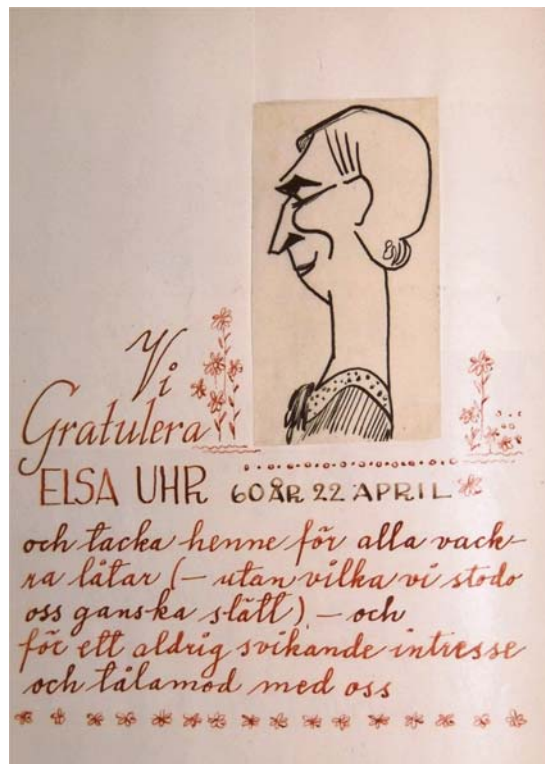 Vi
Gratulera
ELSA UHR 60 ÅR 22 APRIL
och tacka henne för alla vack-
ra låtar (– utan vilka vi stodo
oss ganska slätt) – och
för ett aldrig svikande intresse
och tålamod med oss